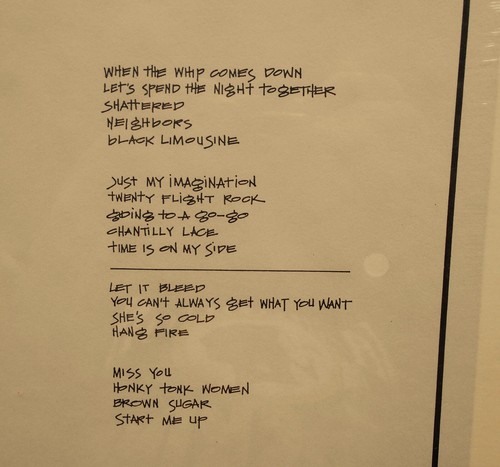 WHEN THE WHIP COMES DOWN
LET'S SPEND THE NIGHT TOGETHER
SHATTERED
NEIGHBORS
BLACK LIMOUSINE
JUST MY IMAGINATION
TWENTY FLIGHT ROCK
GOING TO A GO-GO
CHANTILLY LACE
TIME IS ON MY SIDE
LET IT BLEED
YOU CAN'T ALWAYS GET WHAT YOU WANT
SHE'S SO COLD
HANG FIRE
MISS YOU
HONKY TONK WOMEN
BROWN SUGAR
START ME UP